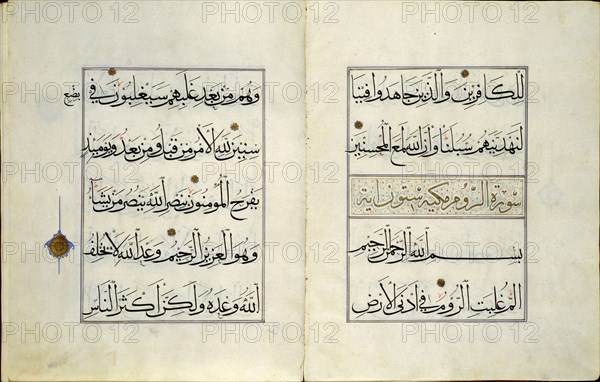 للكافرين والذين جاهدوا فينا
لنهدينهم سبلنا وان الله لمع المحسنين
سورة الروم مكية ستون اية
بسم الله الرحمن الرحيم
الم غلبت الروم في ادنى الارض
وهم من بعد غلبهم سيغلبون في
بضع
سنين لله الامر من قبل ومن بعد ويومئذ
يفرح المؤمنون بنصر الله ينصر من يشاء
وهو العزيز الرحيم وعد الله لا يخلف
الله وعده ولكن اكثر الناس
PHOTO 12